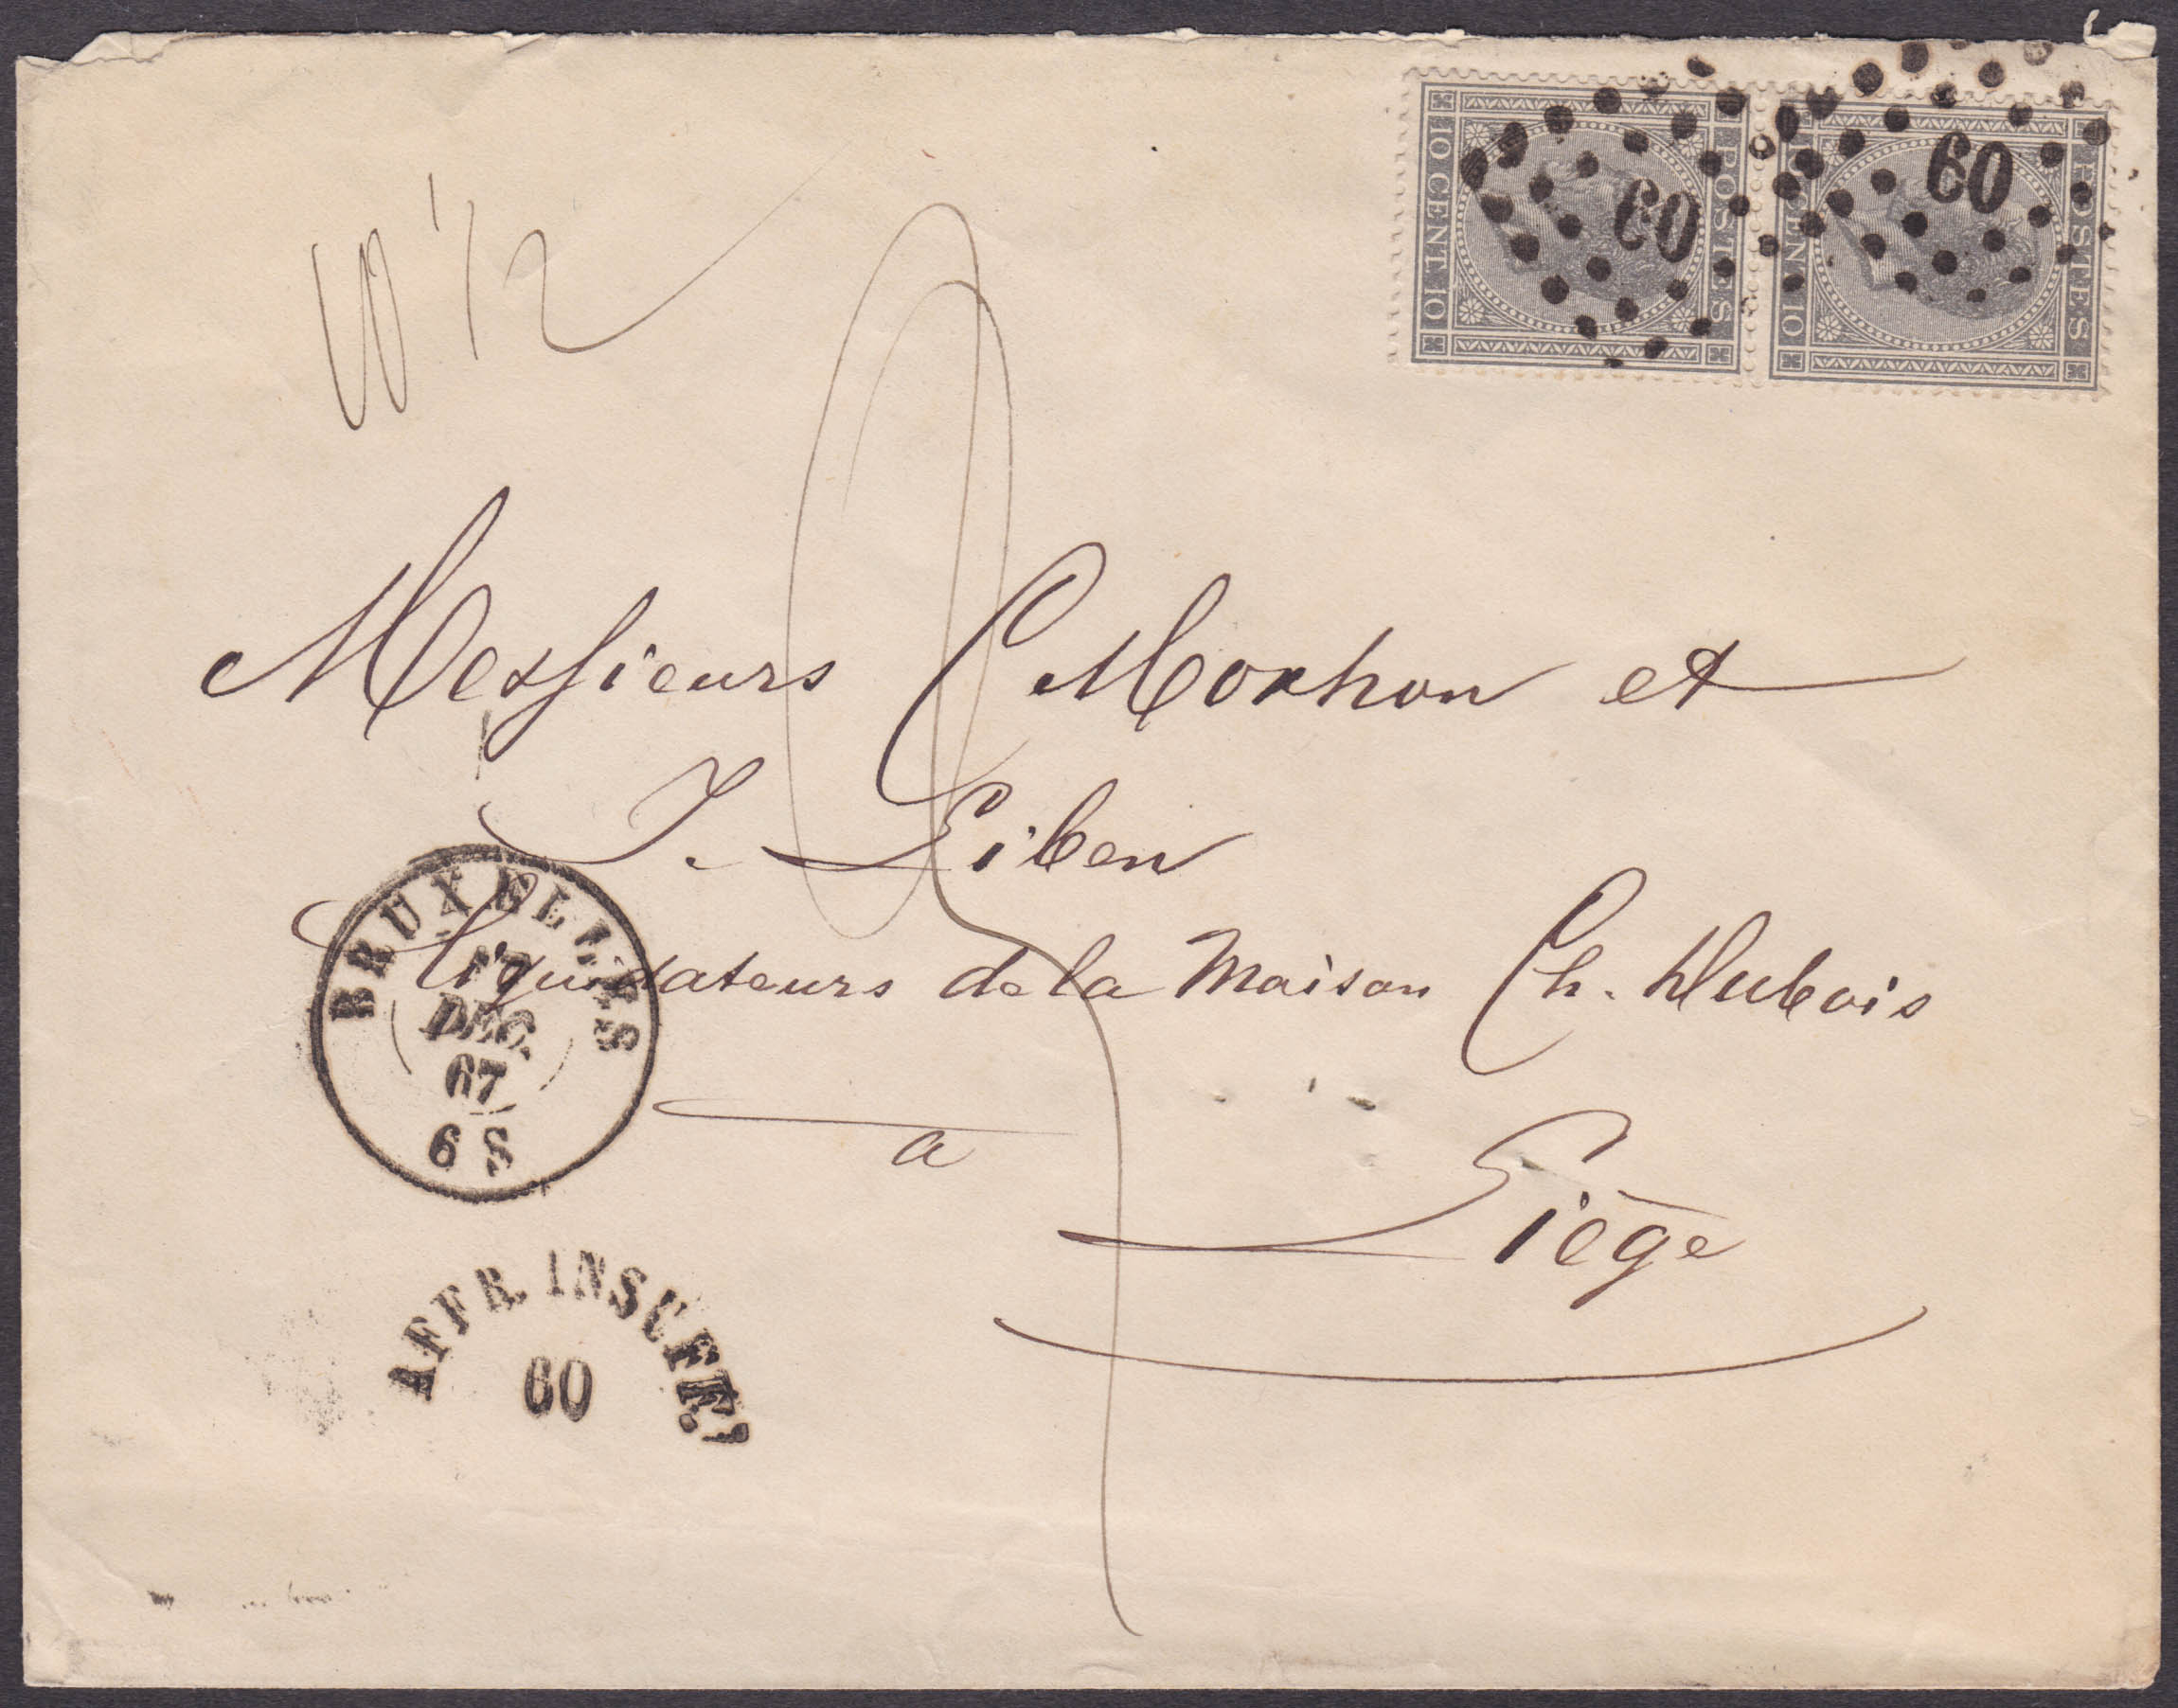 10 1/2
10 CENT. 10
POSTES
60
10 CENT. 10
POSTES
60
Messieurs C Morhon et
J. Liben
liquidateurs de la Maison Ch. Dubois
a
Liège
BRUXELLES
17
DEC.
67
6 S
AFFR. INSUFF.
60